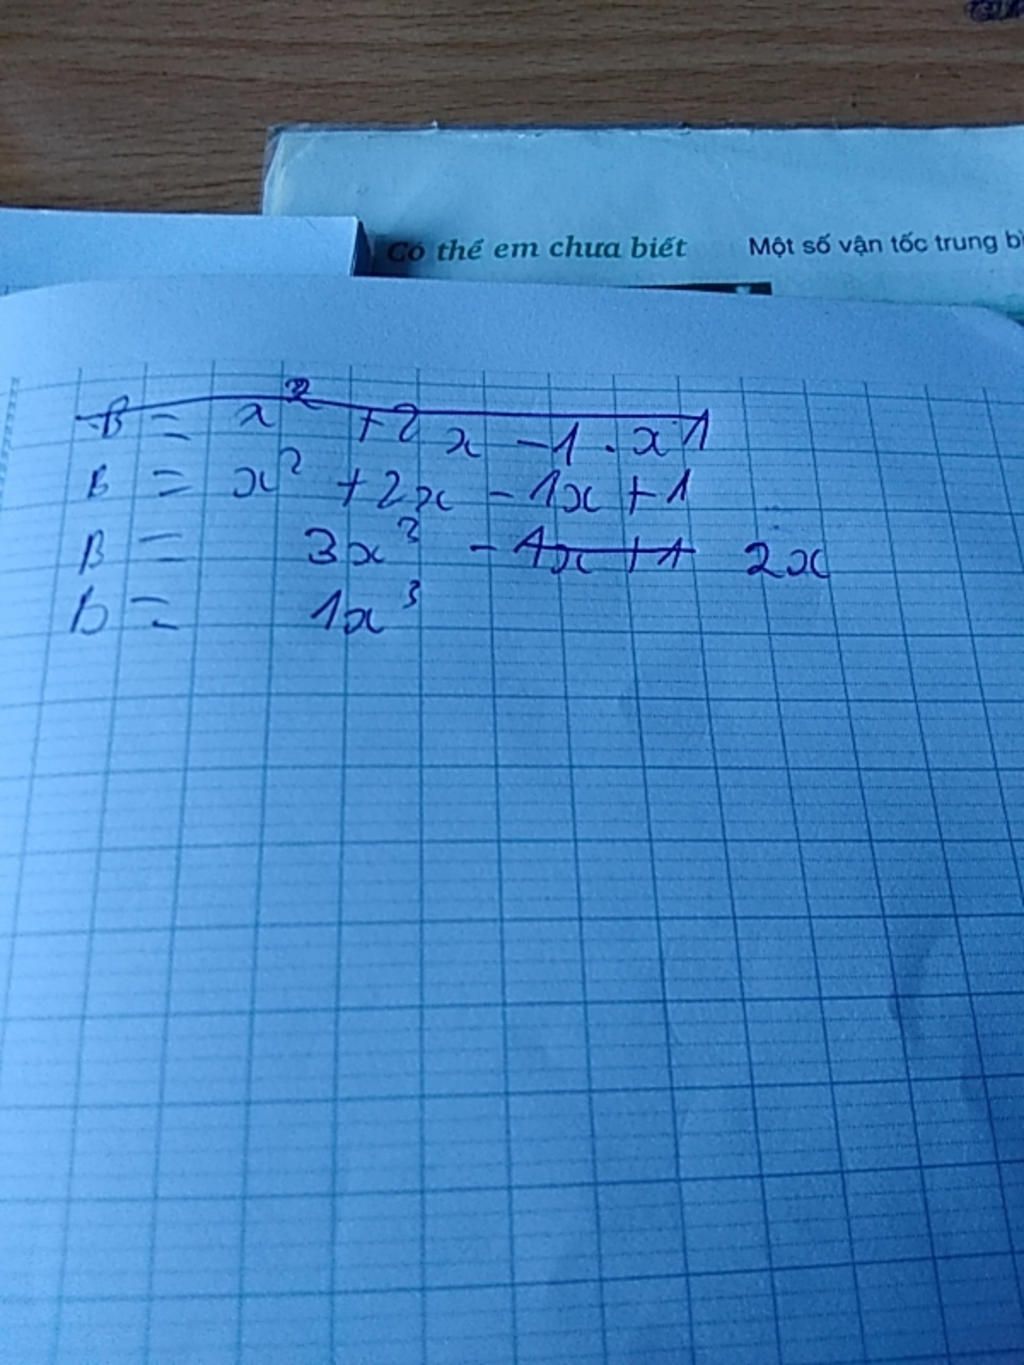 Có thể em chưa biết Một số vận tốc trung bì
B = x² + 2x - 1 . x 1
B = x² + 2x - 1x + 1
B = 3x³ - 1x + 1 2x
B = 1x³